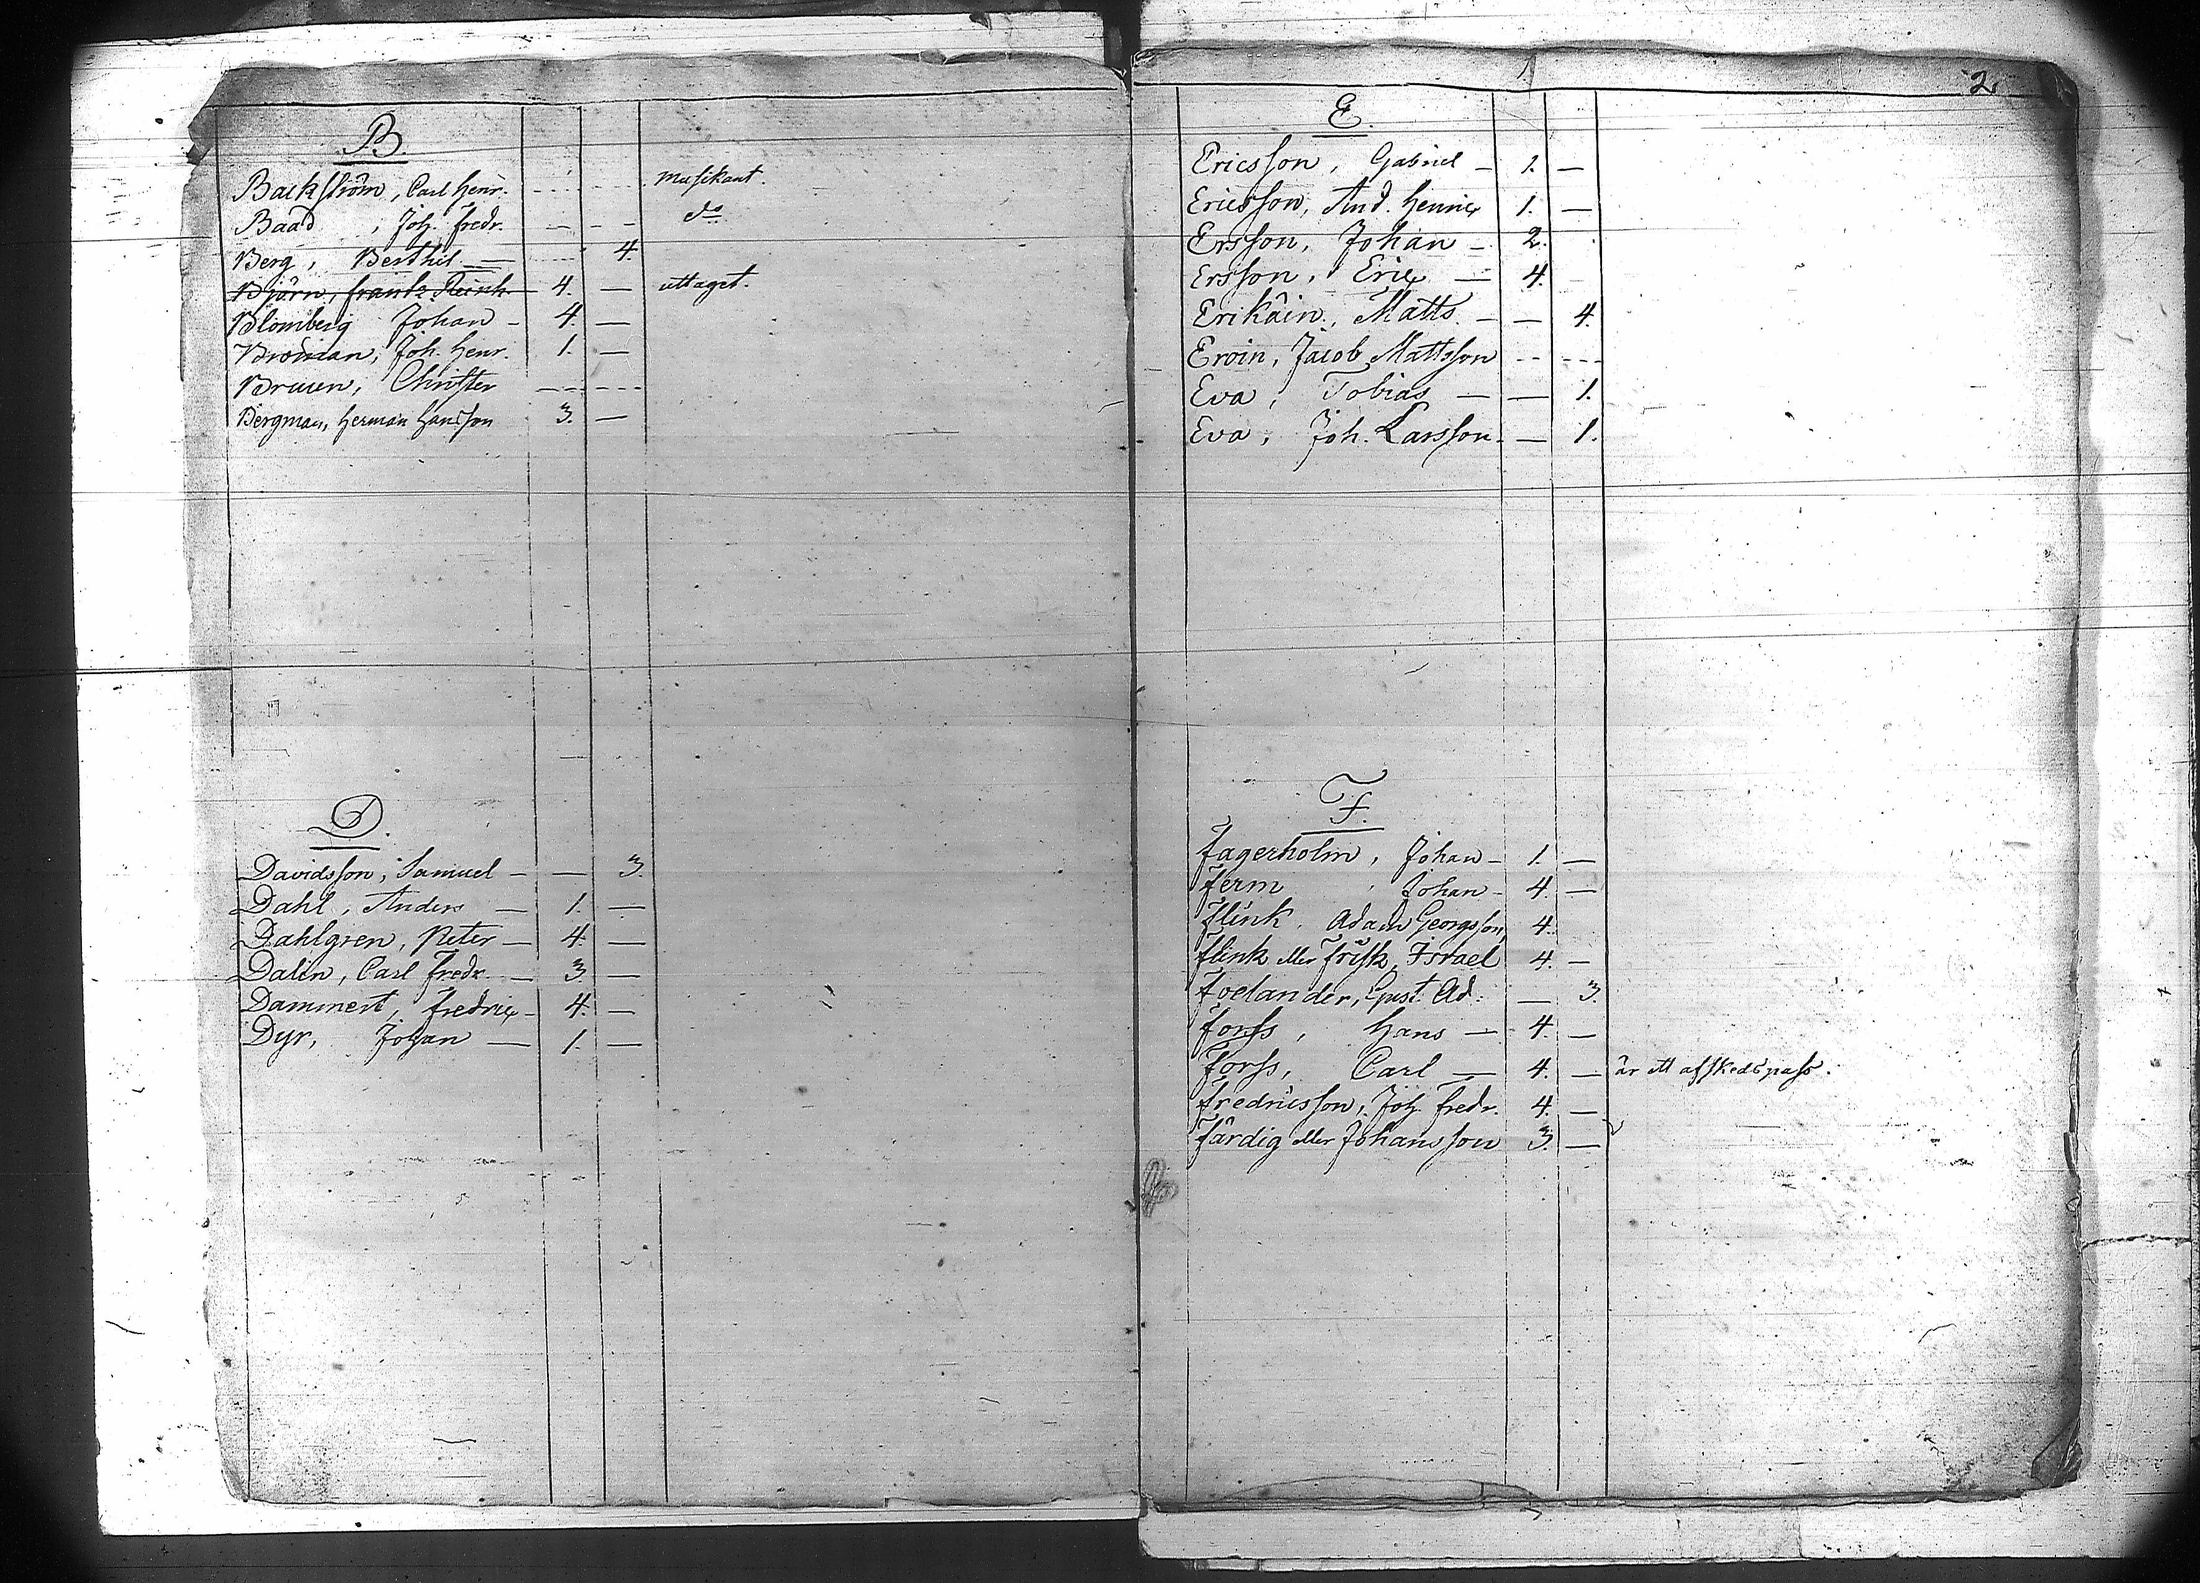 B.
Backström, Carl Henr. - - - - Musikant.
Baad, Joh. Fredr. - - - do
Berg, Berthil — - - - 4.
Björn, Frants Reinh. 4. — uttaget.
Blomberg Johan - 4. —
Broman, Joh. Henr. 1. —
Bruen, Christer - - - -
Bergman, Herman Hansson 3. —
D.
Davidsson, Samuel - — 3.
Dahl, Anders — 1. —
Dahlgren, Peter — 4. —
Dalin, Carl Fredr. — 3. —
Dammert, Fredric - 4. —
Dyr, Johan — 1. —
2.
E.
Ericsson, Gabriel - 1. —
Ericsson, And. Henric 1. —
Ersson, Johan - 2.
Ersson, Eric — 4.
Erikäin, Matts. — — 4.
Eroin, Jacob Mattsson - - - - -
Eva, Tobias — — 1.
Eva, Joh. Larsson - — 1.
F.
Fagerholm, Johan - 1. —
Ferm, Johan - 4. —
Flink, Adam Georgsson, 4.
Flink eller Frisk, Israel 4. —
Foelander, Gust. Ad. — 3.
Forss, Hans — 4. —
Forss, Carl — 4. — är ett afskedspass.
Fredricsson, Joh. Fredr. 4. —
Färdig eller Johansson 3. —